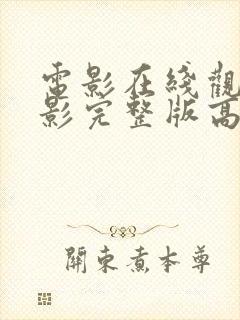 電影在綫觀
影完整版高
關東煮本尊